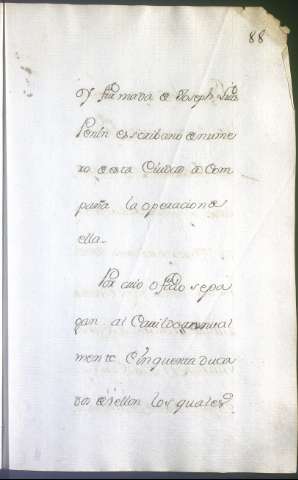 88
y firmada de Joseph
Penin escribano de nume
ro de esta Ciudad acom
paña la operacion de
ella.
Por cuio o se pa
gan al Cavildo annual
mente Cinquenta Duca
dos de vellon los quales